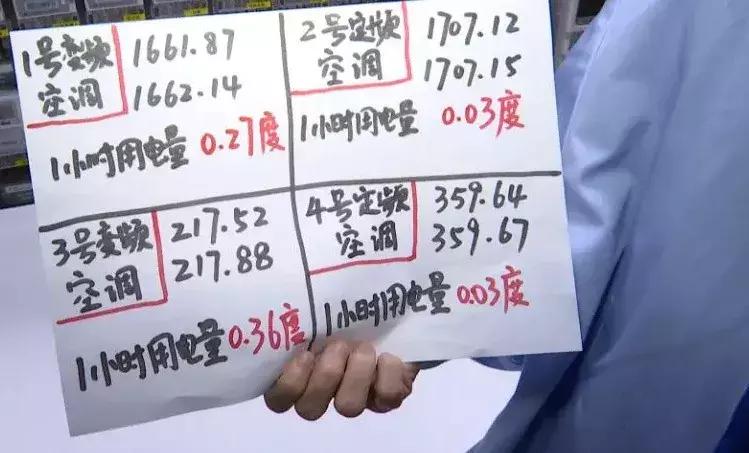 1号变频
空调
1661.87
1662.14
1小时用电量 0.27度
2号定频
空调
1707.12
1707.15
1小时用电量 0.03度
3号变频
空调
217.52
217.88
1小时用电量 0.36度
4号定频
空调
359.64
359.67
1小时用电量 0.03度